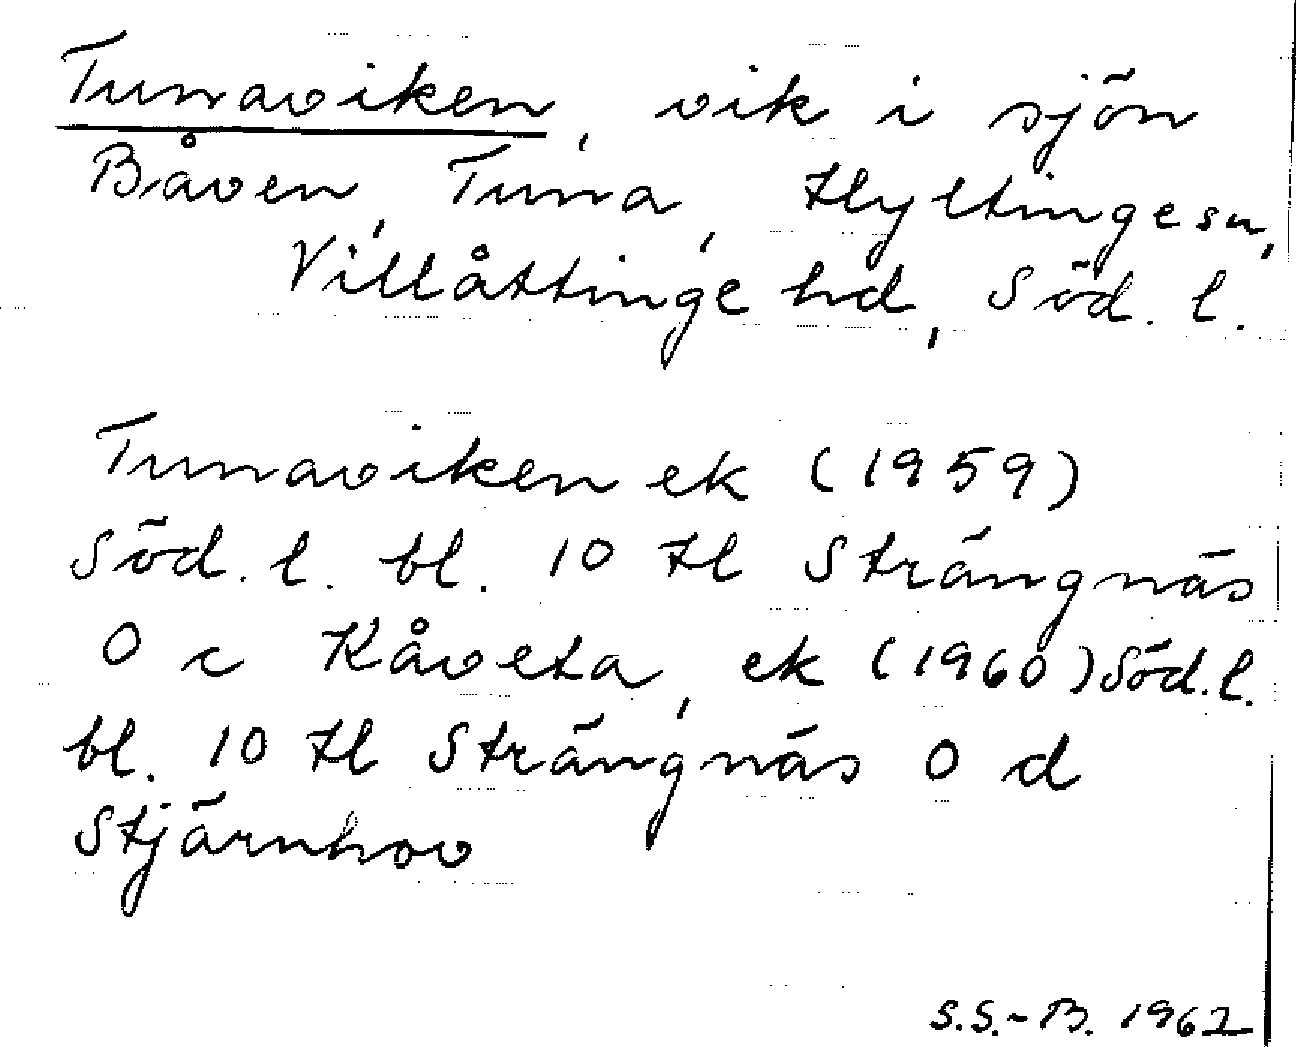 Tunaviken, vik i sjön
Båven, Tuna, Hyltinge sn,
Villåttinge hd, Söd. l.
Tunaviken ek (1959)
Söd. l. bl. 10 H Strängnäs
O c Kåveta, ek (1960) Söd. l.
bl. 10 H Strängnäs O d
Stjärnhov
S.S.-B. 1962